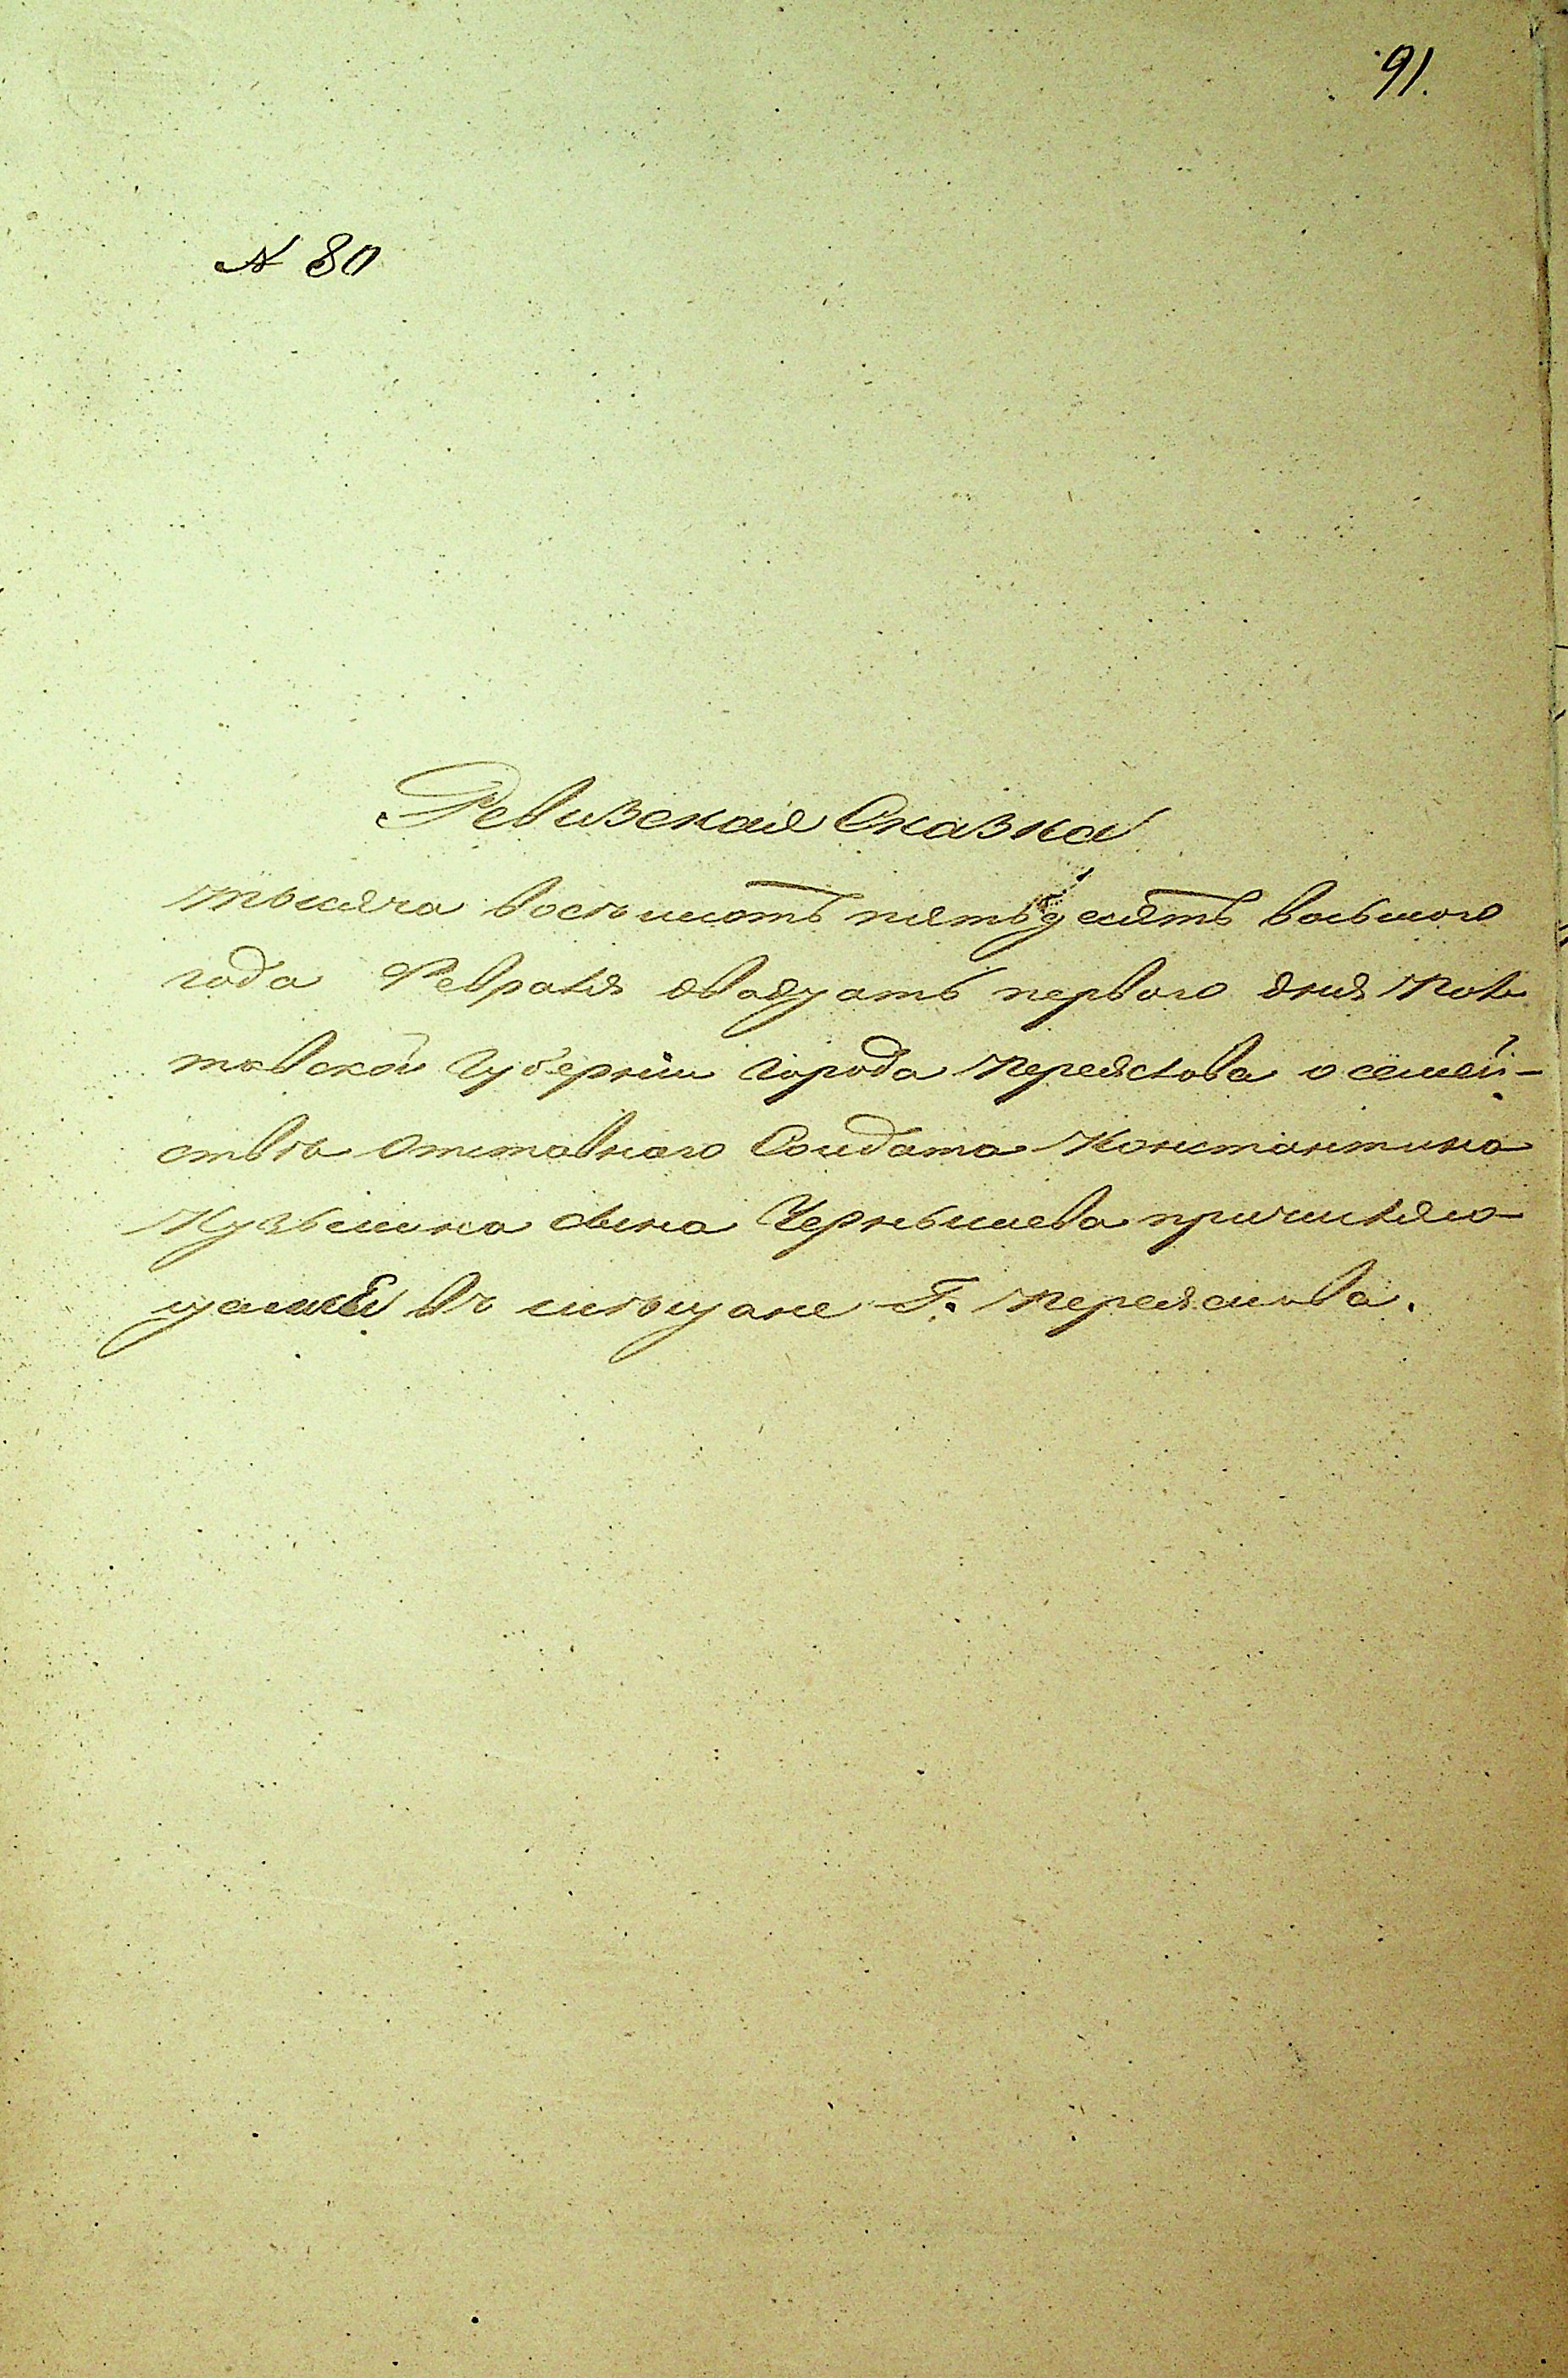 91.
№ 80
Ревизская Сказка
тысяча восемьсотъ пятьдесятъ восьмого
года Февраля двадцать первого дня Пол
тавской Губерніи города Переяслова о семей-
ствѣ Отставнаго Солдата Константина
Кузьмина сына Чернышева причисляю
щамсЕ въ мѣщане Г. Переяслова.